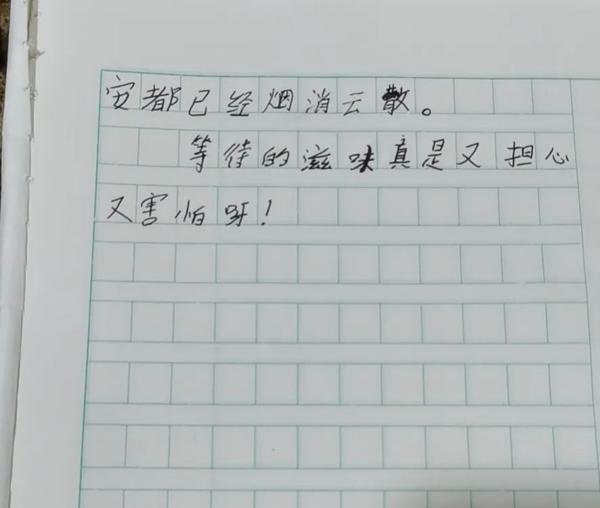 安都已经烟消云散。
等待的滋味真是又担心
又害怕呀！